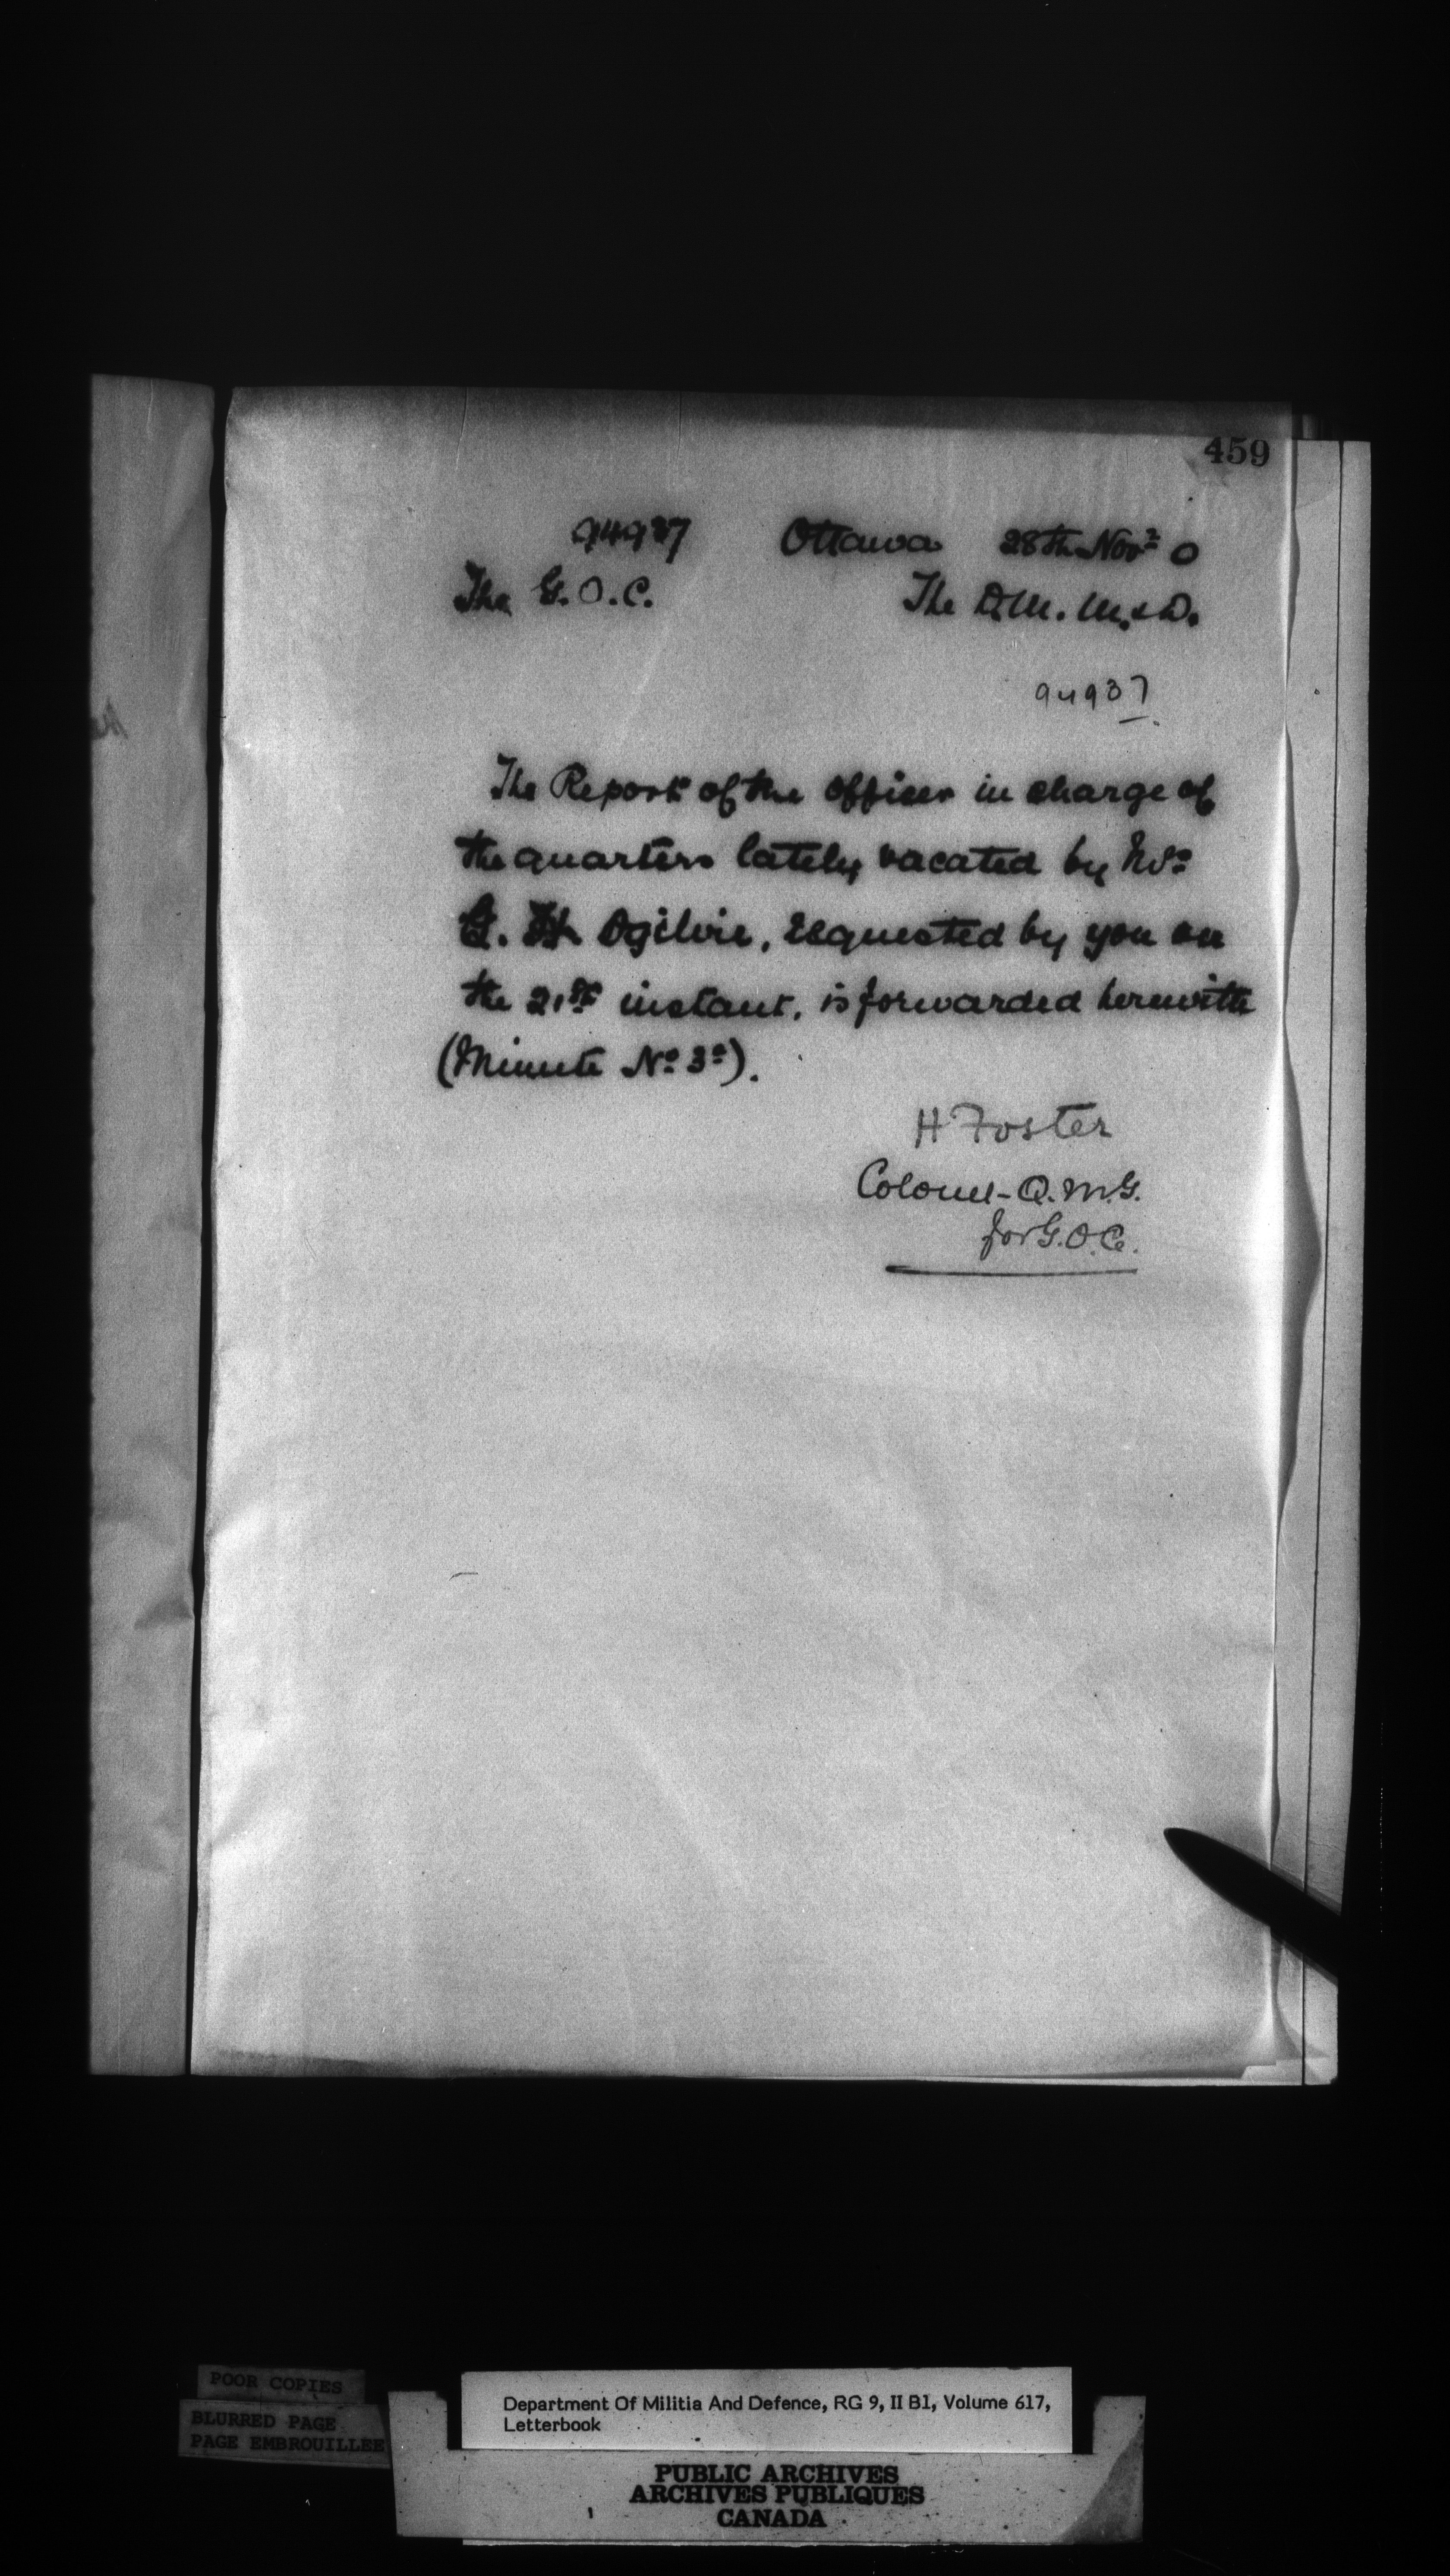 459
94937 Ottawa 28th Novr 0
The G.O.C. The D.M. M. & D.
94937
The Report of the Officer in charge of
the quarters lately vacated by
G. H. Ogilvie, requested by you on
the 21st instant, is forwarded herewith
(Minute No 3a).
H Foster
Colonel - Q.M.G.
for G.O.C.
POOR COPIES
BLURRED PAGE
PAGE EMBROUILLEE
Department Of Militia And Defence, RG 9, II B1, Volume 617,
Letterbook
PUBLIC ARCHIVES
ARCHIVES PUBLIQUES
CANADA